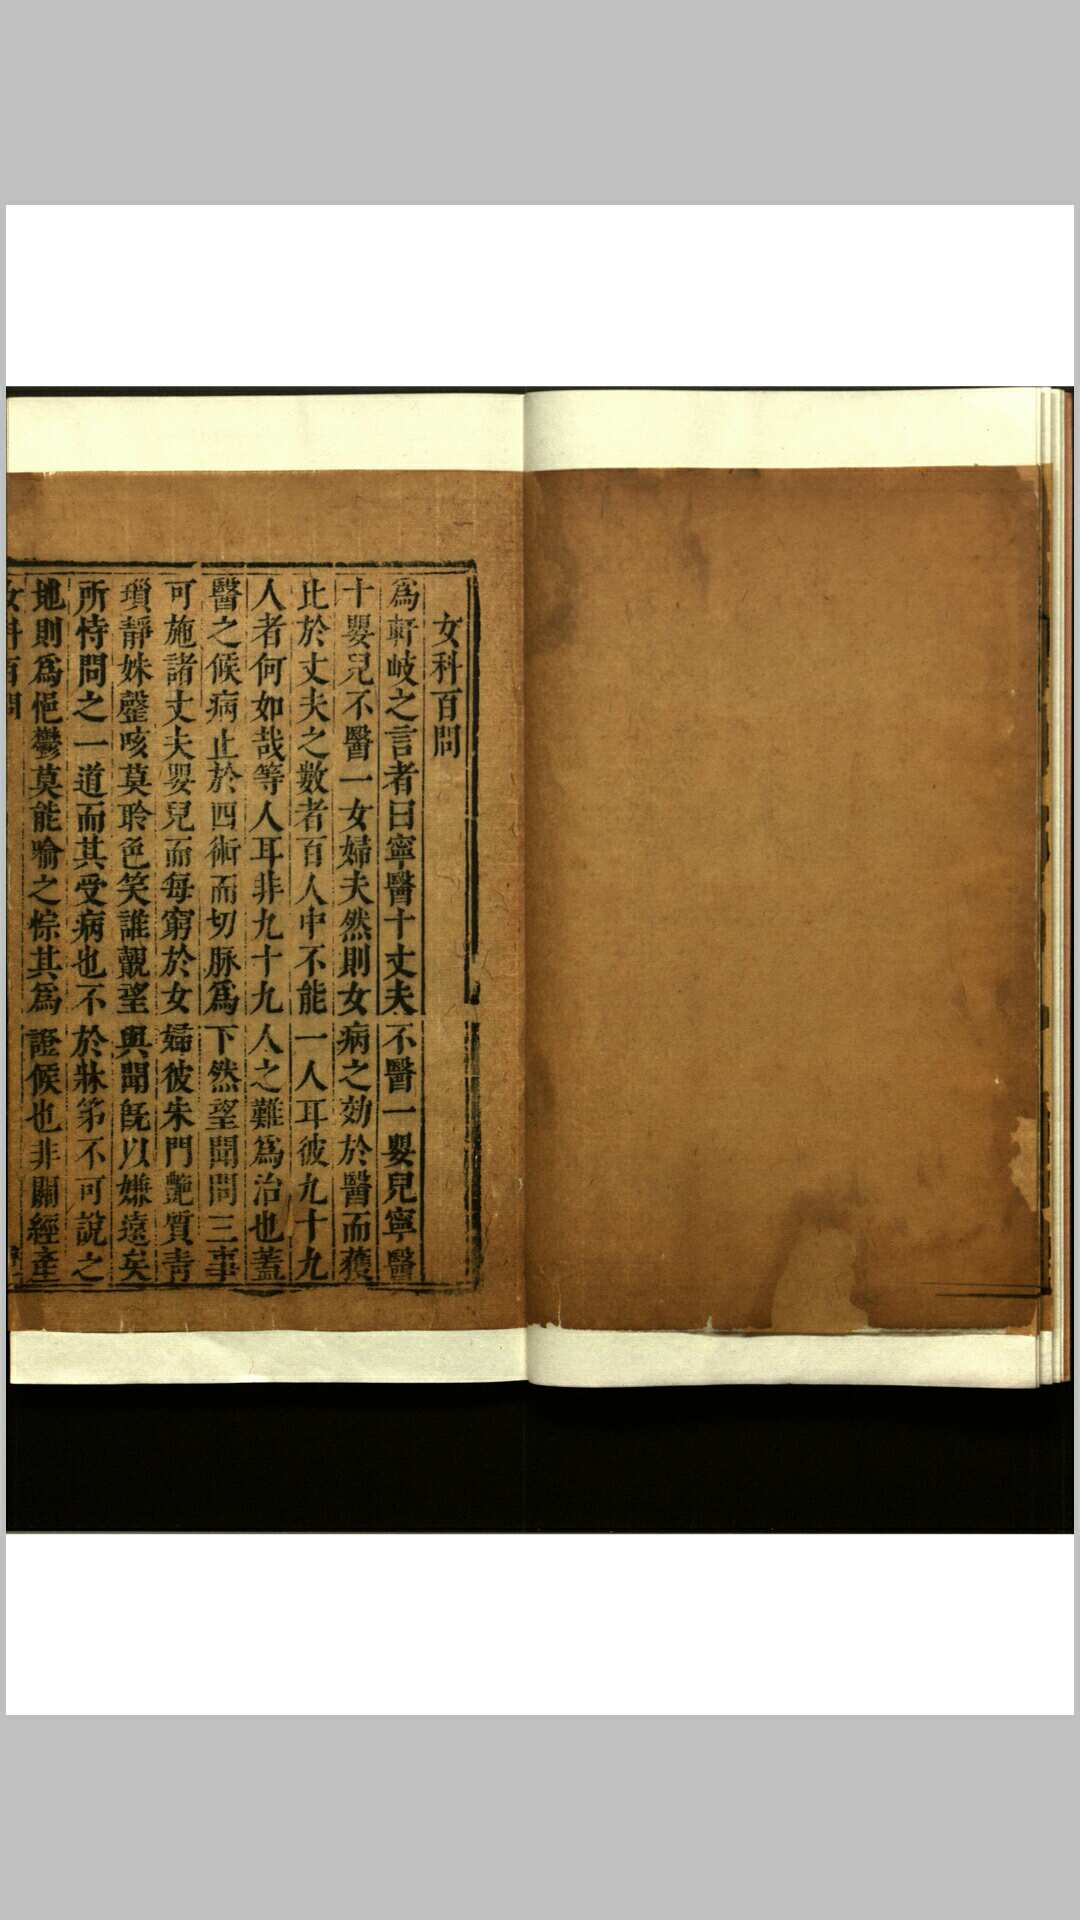 女科百問
為軒岐之言者曰寧醫十丈夫不醫一嬰兒寧醫
十嬰兒不醫一女婦夫然則女病之効於醫而獲
此於丈夫之數者百人中不能一人耳彼九十九
人者何如哉等人耳非九十九人之難為治也蓋
醫之候病止於四術而切脉為下然望聞問三事
可施諸丈夫嬰兒而每窮於女婦彼朱門艶質青
瑣靜姝謦咳莫聆色笑誰覿望與聞旣以嫌遠矣
所恃問之一道而其受病也不於牀笫不可說之
地則為悒鬱莫能喻之悰其為證候也非關經產
女科百問